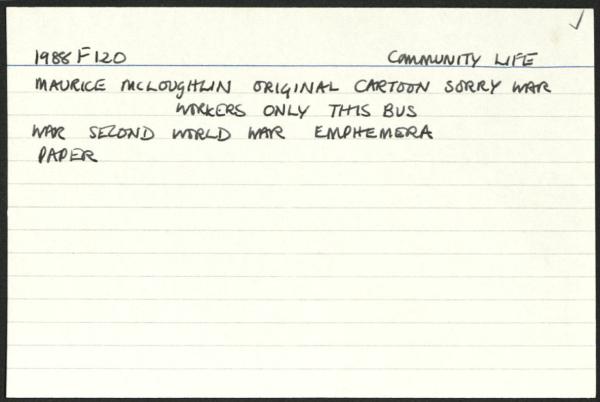 1988 F 120 COMMUNITY LIFE
MAURICE MCLOUGHLIN ORIGINAL CARTOON SORRY WAR
WORKERS ONLY THIS BUS
WAR SECOND WORLD WAR EMPHEMERA
PAPER